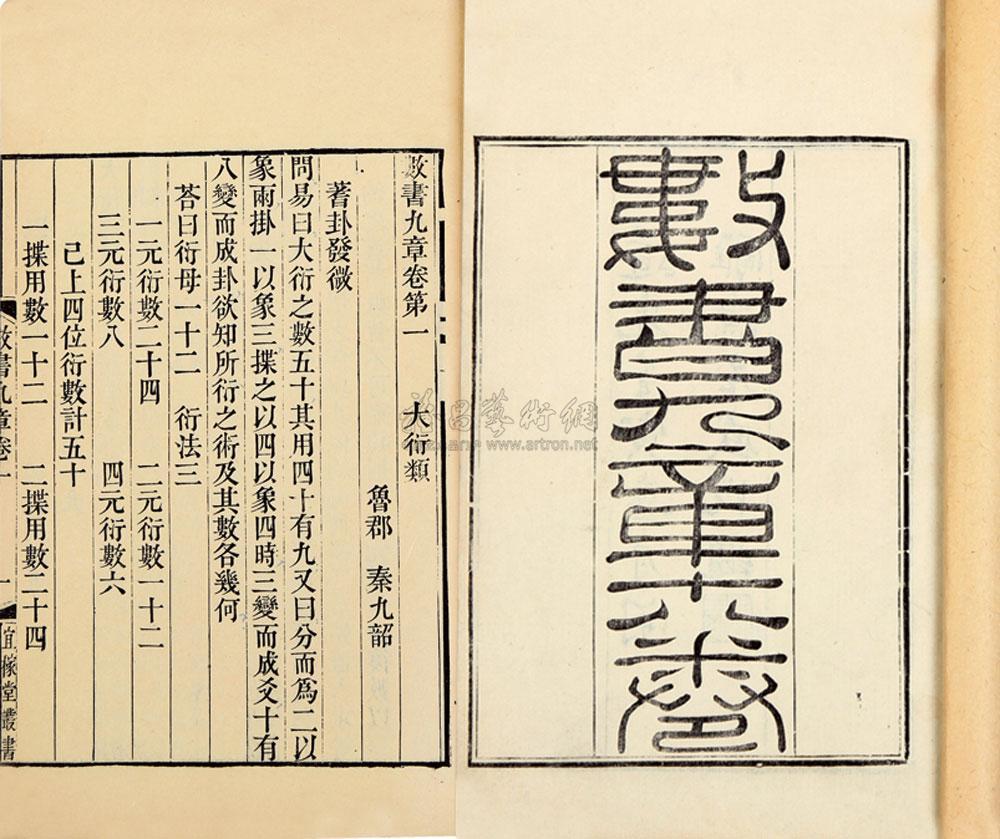 數書九章十八卷
數書九章卷第一 大衍類
魯郡 秦九韶
蓍卦發微
問易曰大衍之數五十其用四十有九又曰分而爲二以
象兩掛一以象三揲之以四以象四時三變而成爻十有
八變而成卦欲知所衍之術及其數各幾何
荅曰衍母一十二 衍法三
一元衍數二十四 二元衍數一十二
三元衍數八 四元衍數六
已上四位衍數計五十
一揲用數一十二 二揲用數二十四
數書九章卷一 一 宜稼堂叢書
雅昌藝術網
www.artron.net